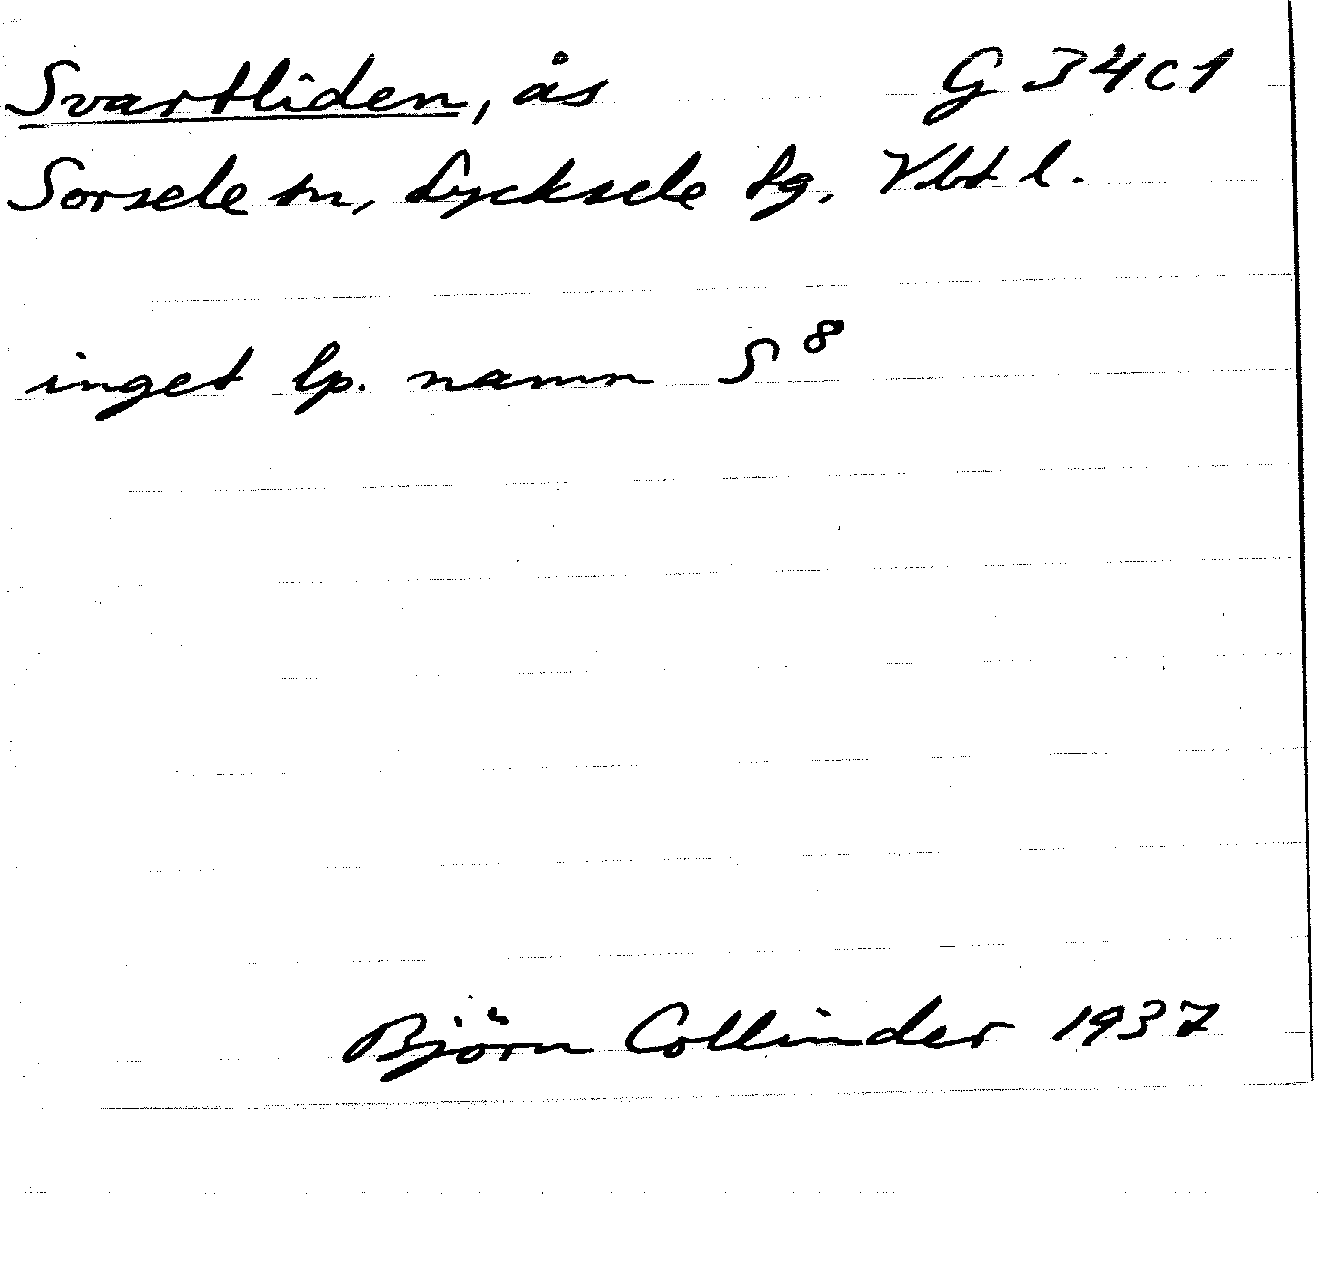 Svartliden, ås G34c1
Sorsele sn, Lycksele lg. Vbt l.
inget lp. namn S⁸
Björn Collinder 1937